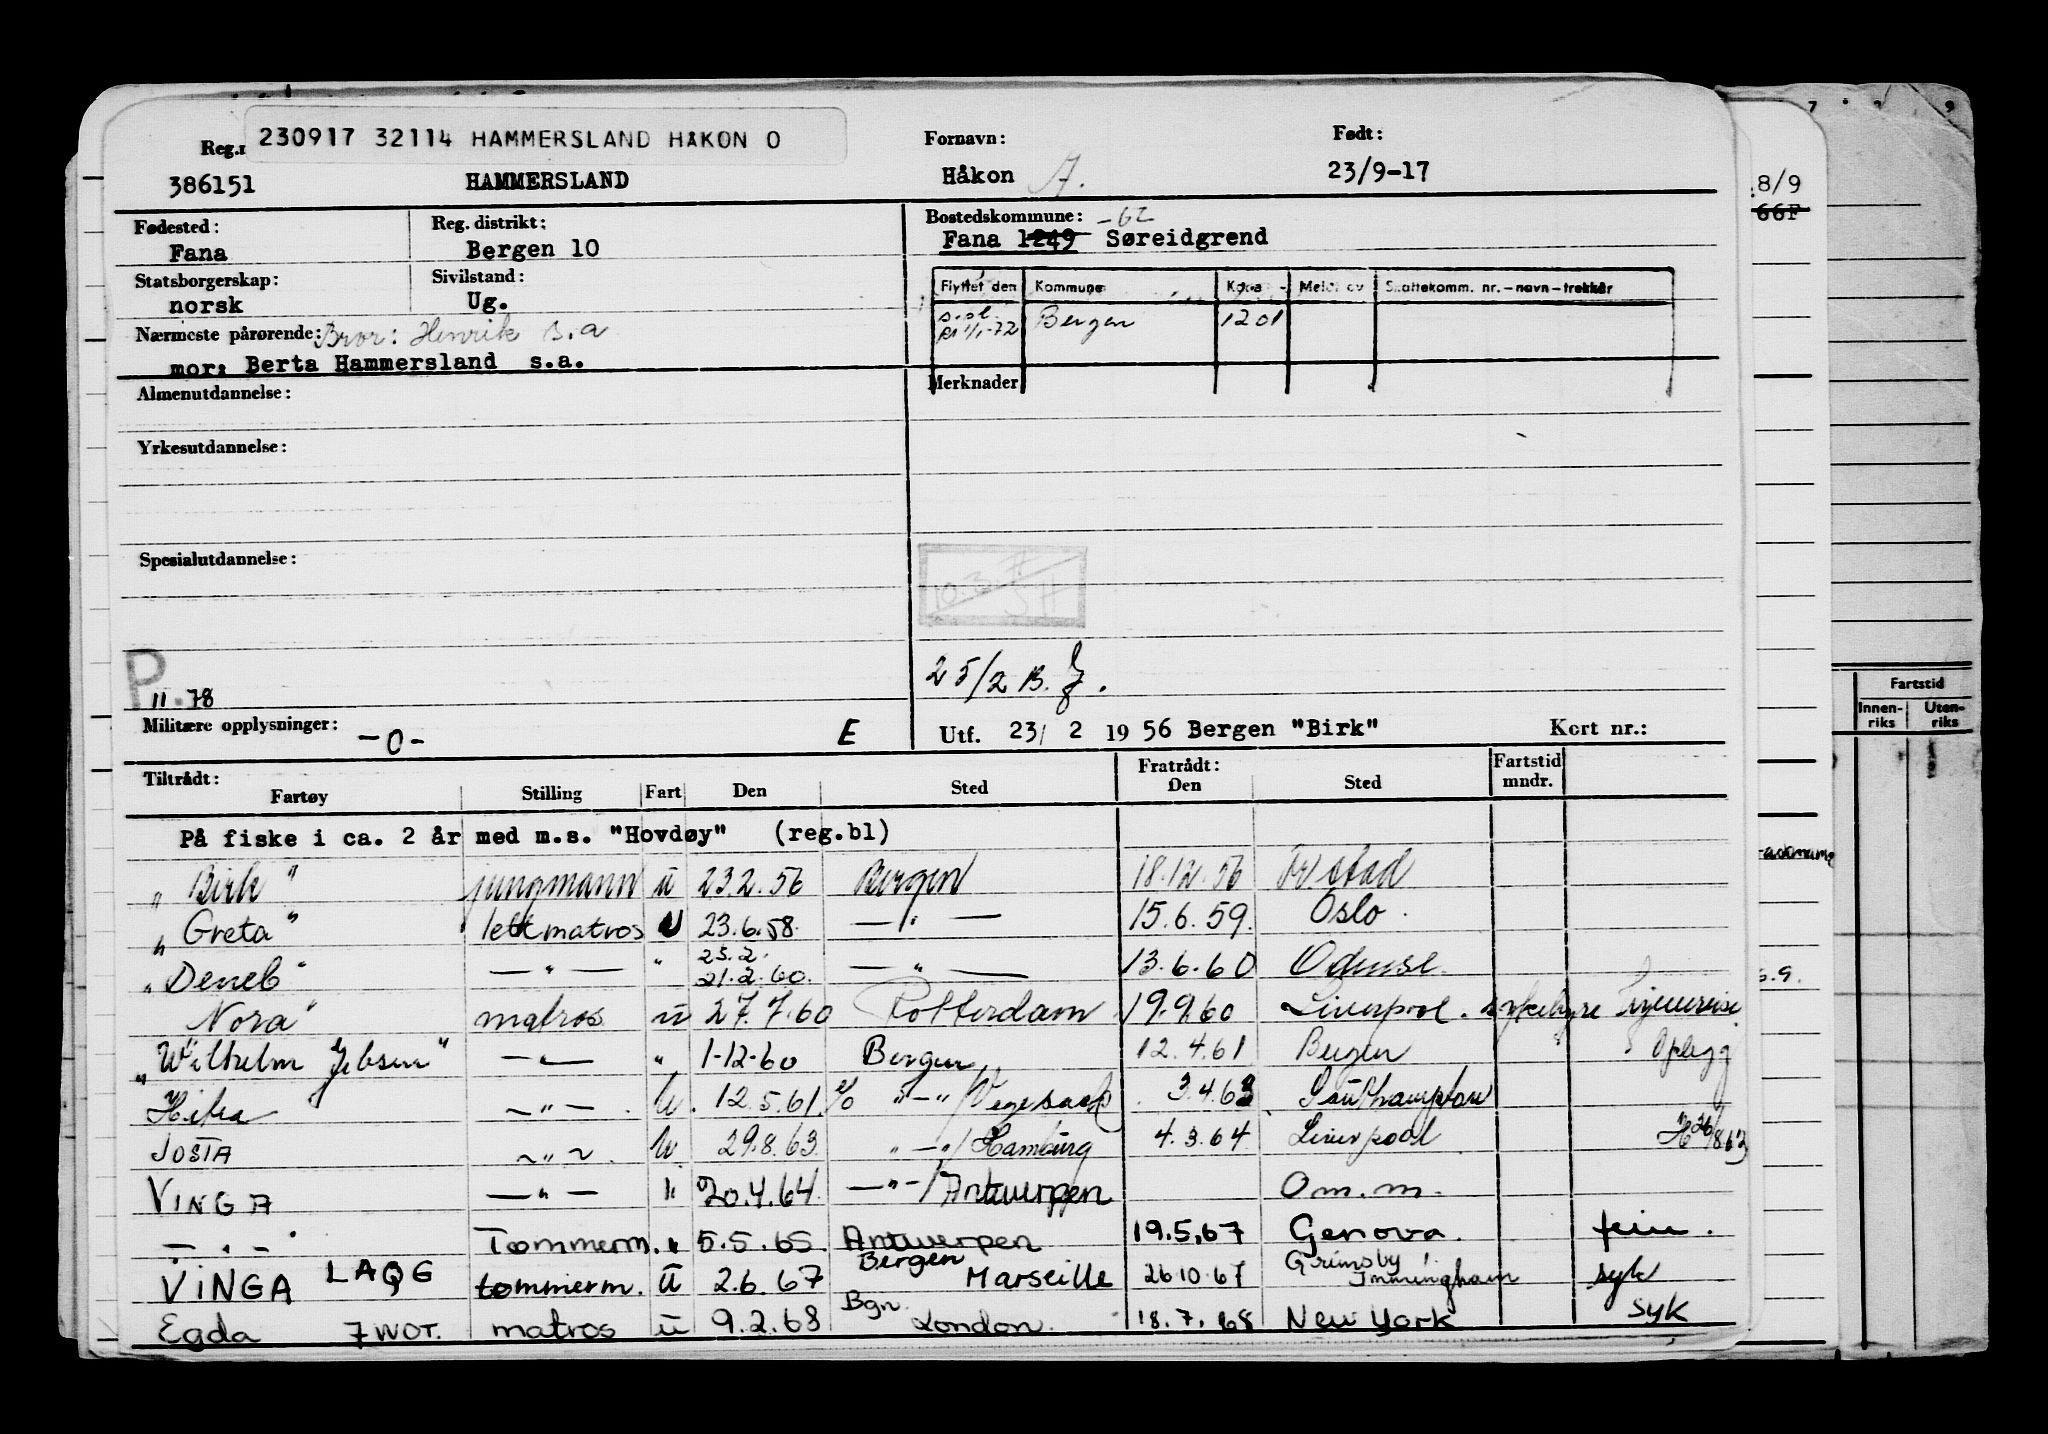 230917 32114 HAMMERSLAND HÅKON O
Reg.n
Fornavn:
Født:
386151 HAMMERSLAND Håkon A. 23/9-17
Fødested: Reg. distrikt: Bostedskommune: -62
Fana Bergen 10 Fana 1249 Søreidgrend
Statsborgerskap: Sivilstand:
norsk Ug.
Flyttet den Kommune Komm Meldt av Skattekomm. nr.-navn-trekkår
1/1-72 Bergen 1201
Nærmeste pårørende: Bror: Henrik s.a
mor: Berta Hammersland s.a.
Almenutdannelse: Merknader
Yrkesutdannelse:
Spesialutdannelse:
P
11.78
25/2 B.
Militære opplysninger: -0- E Utf. 23/ 2 1956 Bergen "Birk" Kort nr.:
Tiltrådt: Fratrådt: Fartstid
Fartøy Stilling Fart Den Sted Den Sted mndr.
På fiske i ca. 2 år med m.s. "Hovdøy" (reg.bl)
"Birk" jungmann u 23.2.56 Bergen 18.12.56 Fr.stad
"Greta" lettmatros u 23.6.58. -"- 15.6.59. Oslo.
25.2.
"Deneb" -"- " 21.2.60. -"- 13.6.60 Odense.
"Nora" matros u 27.7.60 Rotterdam 19.9.60 Liverpool.
"Wilhelm Jebsen" -"- " 1-12-60 Bergen 12.4.61 Bergen Oplegg
Hitra -"- U. 12.5.61. "-"/Vegesack 3.4.63 Southampton
JOSTA -"- U. 29.8.63. "-"/Hamburg 4.3.64 Liverpool
VINGA -"- " 20.4.64. -"-/Antwerpen Om.m.
-"- Tømmerm. " 5.5.65. Antwerpen 19.5.67 Genova. ferie.
Bergen Grimsby
VINGA LAQG tømmerm. u 2.6.67 Marseille 26.10.67 Immingham syk
Bgn.
Egda 7WOT. matros u 9.2.68 London. 18.7.68 New York syk
8/9
66F
Fartstid
Innen-riks Uten-riks